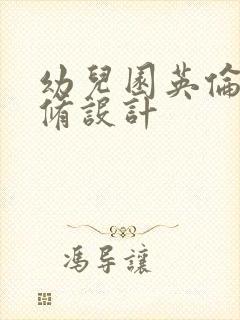 幼兒園英倫
脩設計
馮导讓